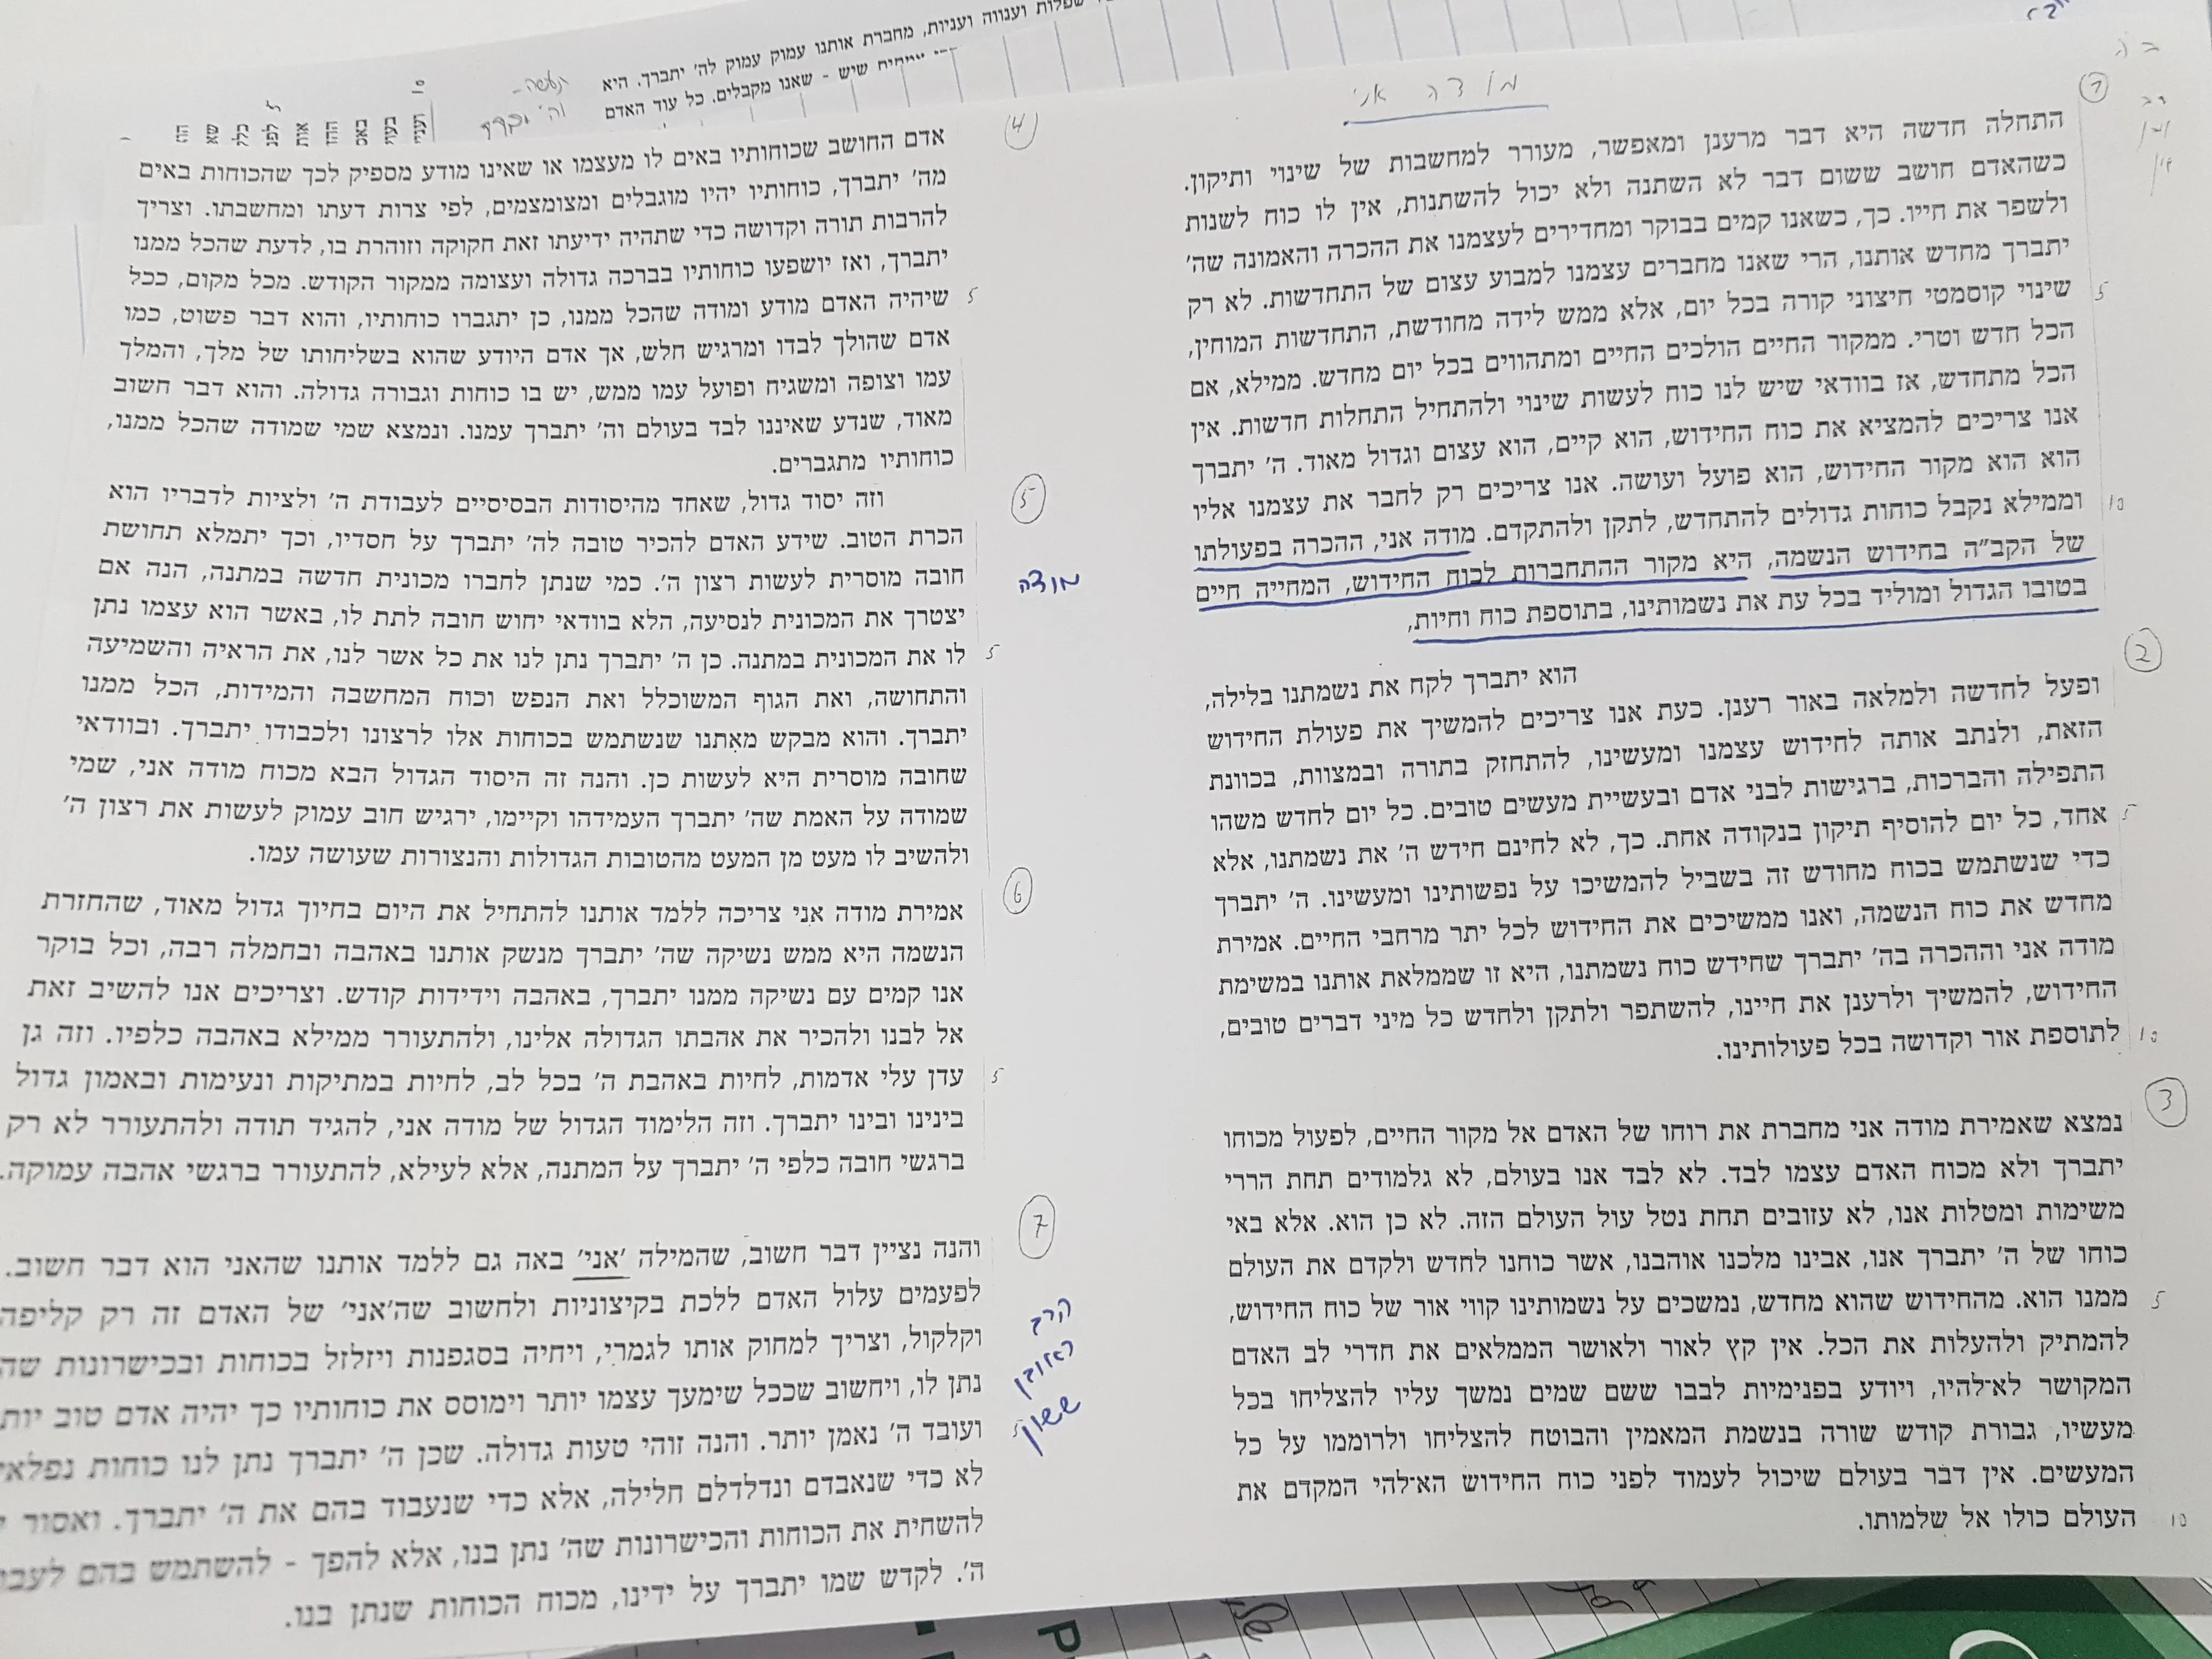 שפלות וענווה ועניות, מחברת אותנו עמוק עמוק לה' יתברך. היא
שיש - שאנו מקבלים. כל עוד האדם
ב ה
מודה אני
1
התחלה חדשה היא דבר מרענן ומאפשר, מעורר למחשבות של שינוי ותיקון.
כשהאדם חושב ששום דבר לא השתנה ולא יכול להשתנות, אין לו כוח לשנות
ולשפר את חייו. כך, כשאנו קמים בבוקר ומחדירים לעצמנו את ההכרה והאמונה שה'
יתברך מחדש אותנו, הרי שאנו מחברים עצמנו למבוע עצום של התחדשות. לא רק
5 שינוי קוסמטי חיצוני קורה בכל יום, אלא ממש לידה מחודשת, התחדשות המוחין,
הכל חדש וטרי. ממקור החיים הולכים החיים ומתהווים בכל יום מחדש. ממילא, אם
הכל מתחדש, אז בוודאי שיש לנו כוח לעשות שינוי ולהתחיל התחלות חדשות. אין
אנו צריכים להמציא את כוח החידוש, הוא קיים, הוא עצום וגדול מאוד. ה' יתברך
הוא הוא מקור החידוש, הוא פועל ועושה. אנו צריכים רק לחבר את עצמנו אליו
10 וממילא נקבל כוחות גדולים להתחדש, לתקן ולהתקדם. מודה אני, ההכרה בפעולתו
של הקב"ה בחידוש הנשמה, היא מקור ההתחברות לכוח החידוש, המחייה חיים
בטובו הגדול ומוליד בכל עת את נשמותינו, בתוספת כוח וחיות,
2
הוא יתברך לקח את נשמתנו בלילה,
ופעל לחדשה ולמלאה באור רענן. כעת אנו צריכים להמשיך את פעולת החידוש
הזאת, ולנתב אותה לחידוש עצמנו ומעשינו, להתחזק בתורה ובמצוות, בכוונת
התפילה והברכות, ברגישות לבני אדם ובעשיית מעשים טובים. כל יום לחדש משהו
5 אחד, כל יום להוסיף תיקון בנקודה אחת. כך, לא לחינם חידש ה' את נשמתנו, אלא
כדי שנשתמש בכוח מחודש זה בשביל להמשיכו על נפשותינו ומעשינו. ה' יתברך
מחדש את כוח הנשמה, ואנו ממשיכים את החידוש לכל יתר מרחבי החיים. אמירת
מודה אני וההכרה בה' יתברך שחידש כוח נשמתנו, היא זו שממלאת אותנו במשימת
החידוש, להמשיך ולרענן את חיינו, להשתפר ולתקן ולחדש כל מיני דברים טובים,
10 לתוספת אור וקדושה בכל פעולותינו.
3
נמצא שאמירת מודה אני מחברת את רוחו של האדם אל מקור החיים, לפעול מכוחו
יתברך ולא מכוח האדם עצמו לבד. לא לבד אנו בעולם, לא גלמודים תחת הררי
משימות ומטלות אנו, לא עזובים תחת נטל עול העולם הזה. לא כן הוא. אלא באי
כוחו של ה' יתברך אנו, אבינו מלכנו אוהבנו, אשר כוחנו לחדש ולקדם את העולם
5 ממנו הוא. מהחידוש שהוא מחדש, נמשכים על נשמותינו קווי אור של כוח החידוש,
להמתיק ולהעלות את הכל. אין קץ לאור ולאושר הממלאים את חדרי לב האדם
המקושר לא-להיו, ויודע בפנימיות לבבו ששם שמים נמשך עליו להצליחו בכל
מעשיו, גבורת קודש שורה בנשמת המאמין והבוטח להצליחו ולרוממו על כל
המעשים. אין דבר בעולם שיכול לעמוד לפני כוח החידוש הא-להי המקדם את
10 העולם כולו אל שלמותו.
4
אדם החושב שכוחותיו באים לו מעצמו או שאינו מודע מספיק לכך שהכוחות באים
מה' יתברך, כוחותיו יהיו מוגבלים ומצומצמים, לפי צרות דעתו ומחשבתו. וצריך
להרבות תורה וקדושה כדי שתהיה ידיעתו זאת חקוקה וזוהרת בו, לדעת שהכל ממנו
יתברך, ואז יושפעו כוחותיו בברכה גדולה ועצומה ממקור הקודש. מכל מקום, ככל
5 שיהיה האדם מודע ומודה שהכל ממנו, כן יתגברו כוחותיו, והוא דבר פשוט, כמו
אדם שהולך לבדו ומרגיש חלש, אך אדם היודע שהוא בשליחותו של מלך, והמלך
עמו וצופה ומשגיח ופועל עמו ממש, יש בו כוחות וגבורה גדולה. והוא דבר חשוב
מאוד, שנדע שאיננו לבד בעולם וה' יתברך עמנו. ונמצא שמי שמודה שהכל ממנו,
כוחותיו מתגברים.
5
וזה יסוד גדול, שאחד מהיסודות הבסיסיים לעבודת ה' ולציות לדבריו הוא
הכרת הטוב. שידע האדם להכיר טובה לה' יתברך על חסדיו, וכך יתמלא תחושת
מודה
חובה מוסרית לעשות רצון ה'. כמי שנתן לחברו מכונית חדשה במתנה, הנה אם
יצטרך את המכונית לנסיעה, הלא בוודאי יחוש חובה לתת לו, באשר הוא עצמו נתן
5 לו את המכונית במתנה. כן ה' יתברך נתן לנו את כל אשר לנו, את הראיה והשמיעה
והתחושה, ואת הגוף המשוכלל ואת הנפש וכוח המחשבה והמידות, הכל ממנו
יתברך. והוא מבקש מאתנו שנשתמש בכוחות אלו לרצונו ולכבודו יתברך. ובוודאי
שחובה מוסרית היא לעשות כן. והנה זה היסוד הגדול הבא מכוח מודה אני, שמי
שמודה על האמת שה' יתברך העמידהו וקיימו, ירגיש חוב עמוק לעשות את רצון ה'
ולהשיב לו מעט מן המעט מהטובות הגדולות והנצורות שעושה עמו.
6
אמירת מודה אני צריכה ללמד אותנו להתחיל את היום בחיוך גדול מאוד, שהחזרת
הנשמה היא ממש נשיקה שה' יתברך מנשק אותנו באהבה ובחמלה רבה, וכל בוקר
אנו קמים עם נשיקה ממנו יתברך, באהבה וידידות קודש. וצריכים אנו להשיב זאת
אל לבנו ולהכיר את אהבתו הגדולה אלינו, ולהתעורר ממילא באהבה כלפיו. וזה גן
5 עדן עלי אדמות, לחיות באהבת ה' בכל לב, לחיות במתיקות ונעימות ובאמון גדול
בינינו ובינו יתברך. וזה הלימוד הגדול של מודה אני, להגיד תודה ולהתעורר לא רק
ברגשי חובה כלפי ה' יתברך על המתנה, אלא לעילא, להתעורר ברגשי אהבה עמוקה.
7
והנה נציין דבר חשוב, שהמילה 'אני' באה גם ללמד אותנו שהאני הוא דבר חשוב.
לפעמים עלול האדם ללכת בקיצוניות ולחשוב שה'אני' של האדם זה רק קליפה
וקלקול, וצריך למחוק אותו לגמרי, ויחיה בסגפנות ויזלזל בכוחות ובכישרונות שה
נתן לו, ויחשוב שככל שימעך עצמו יותר וימוסס את כוחותיו כך יהיה אדם טוב יות
5 ועובד ה' נאמן יותר. והנה זוהי טעות גדולה. שכן ה' יתברך נתן לנו כוחות נפלאי
לא כדי שנאבדם ונדלדלם חלילה, אלא כדי שנעבוד בהם את ה' יתברך. ואסור
להשחית את הכוחות והכישרונות שה' נתן בנו, אלא להפך - להשתמש בהם לעבו
ה'. לקדש שמו יתברך על ידינו, מכוח הכוחות שנתן בנו.
הרב
ראובן
ששון